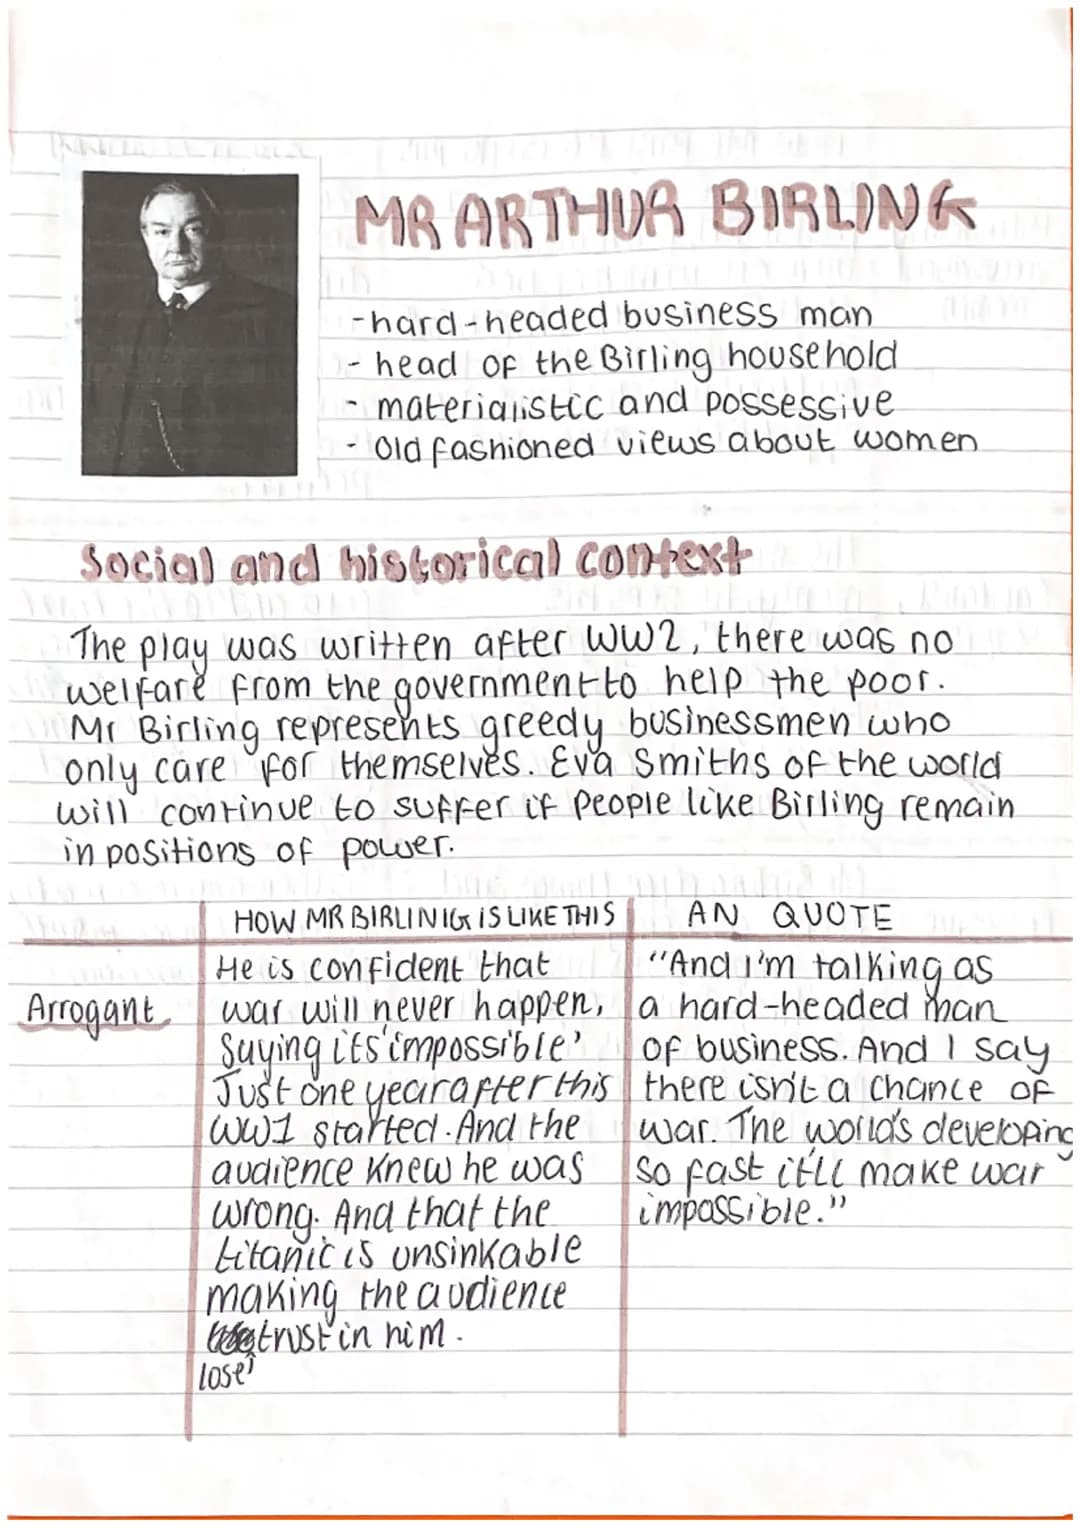 MR ARTHUR BIRLING
-hard-headed business man
- head of the Birling household
- materialistic and possessive
- Old fashioned views about women
Social and historical context
The play was written after WW2, there was no
welfare from the government to help the poor.
Mr Birling represents greedy businessmen who
only care for themselves. Eva Smiths of the world
will continue to suffer if people like Birling remain
in positions of power.
HOW MR BIRLINIG IS LIKE THIS
AN QUOTE
Arrogant
He is confident that
war will never happen,
saying its 'impossible'
Just one year after this
WW1 started. And the
audience knew he was
wrong. And that the
titanic is unsinkable
making the audience
trust in him.
lose
"And I'm talking as
a hard-headed man
of business. And I say
there isn't a chance of
war. The world's developing
so fast it'll make war
impossible."